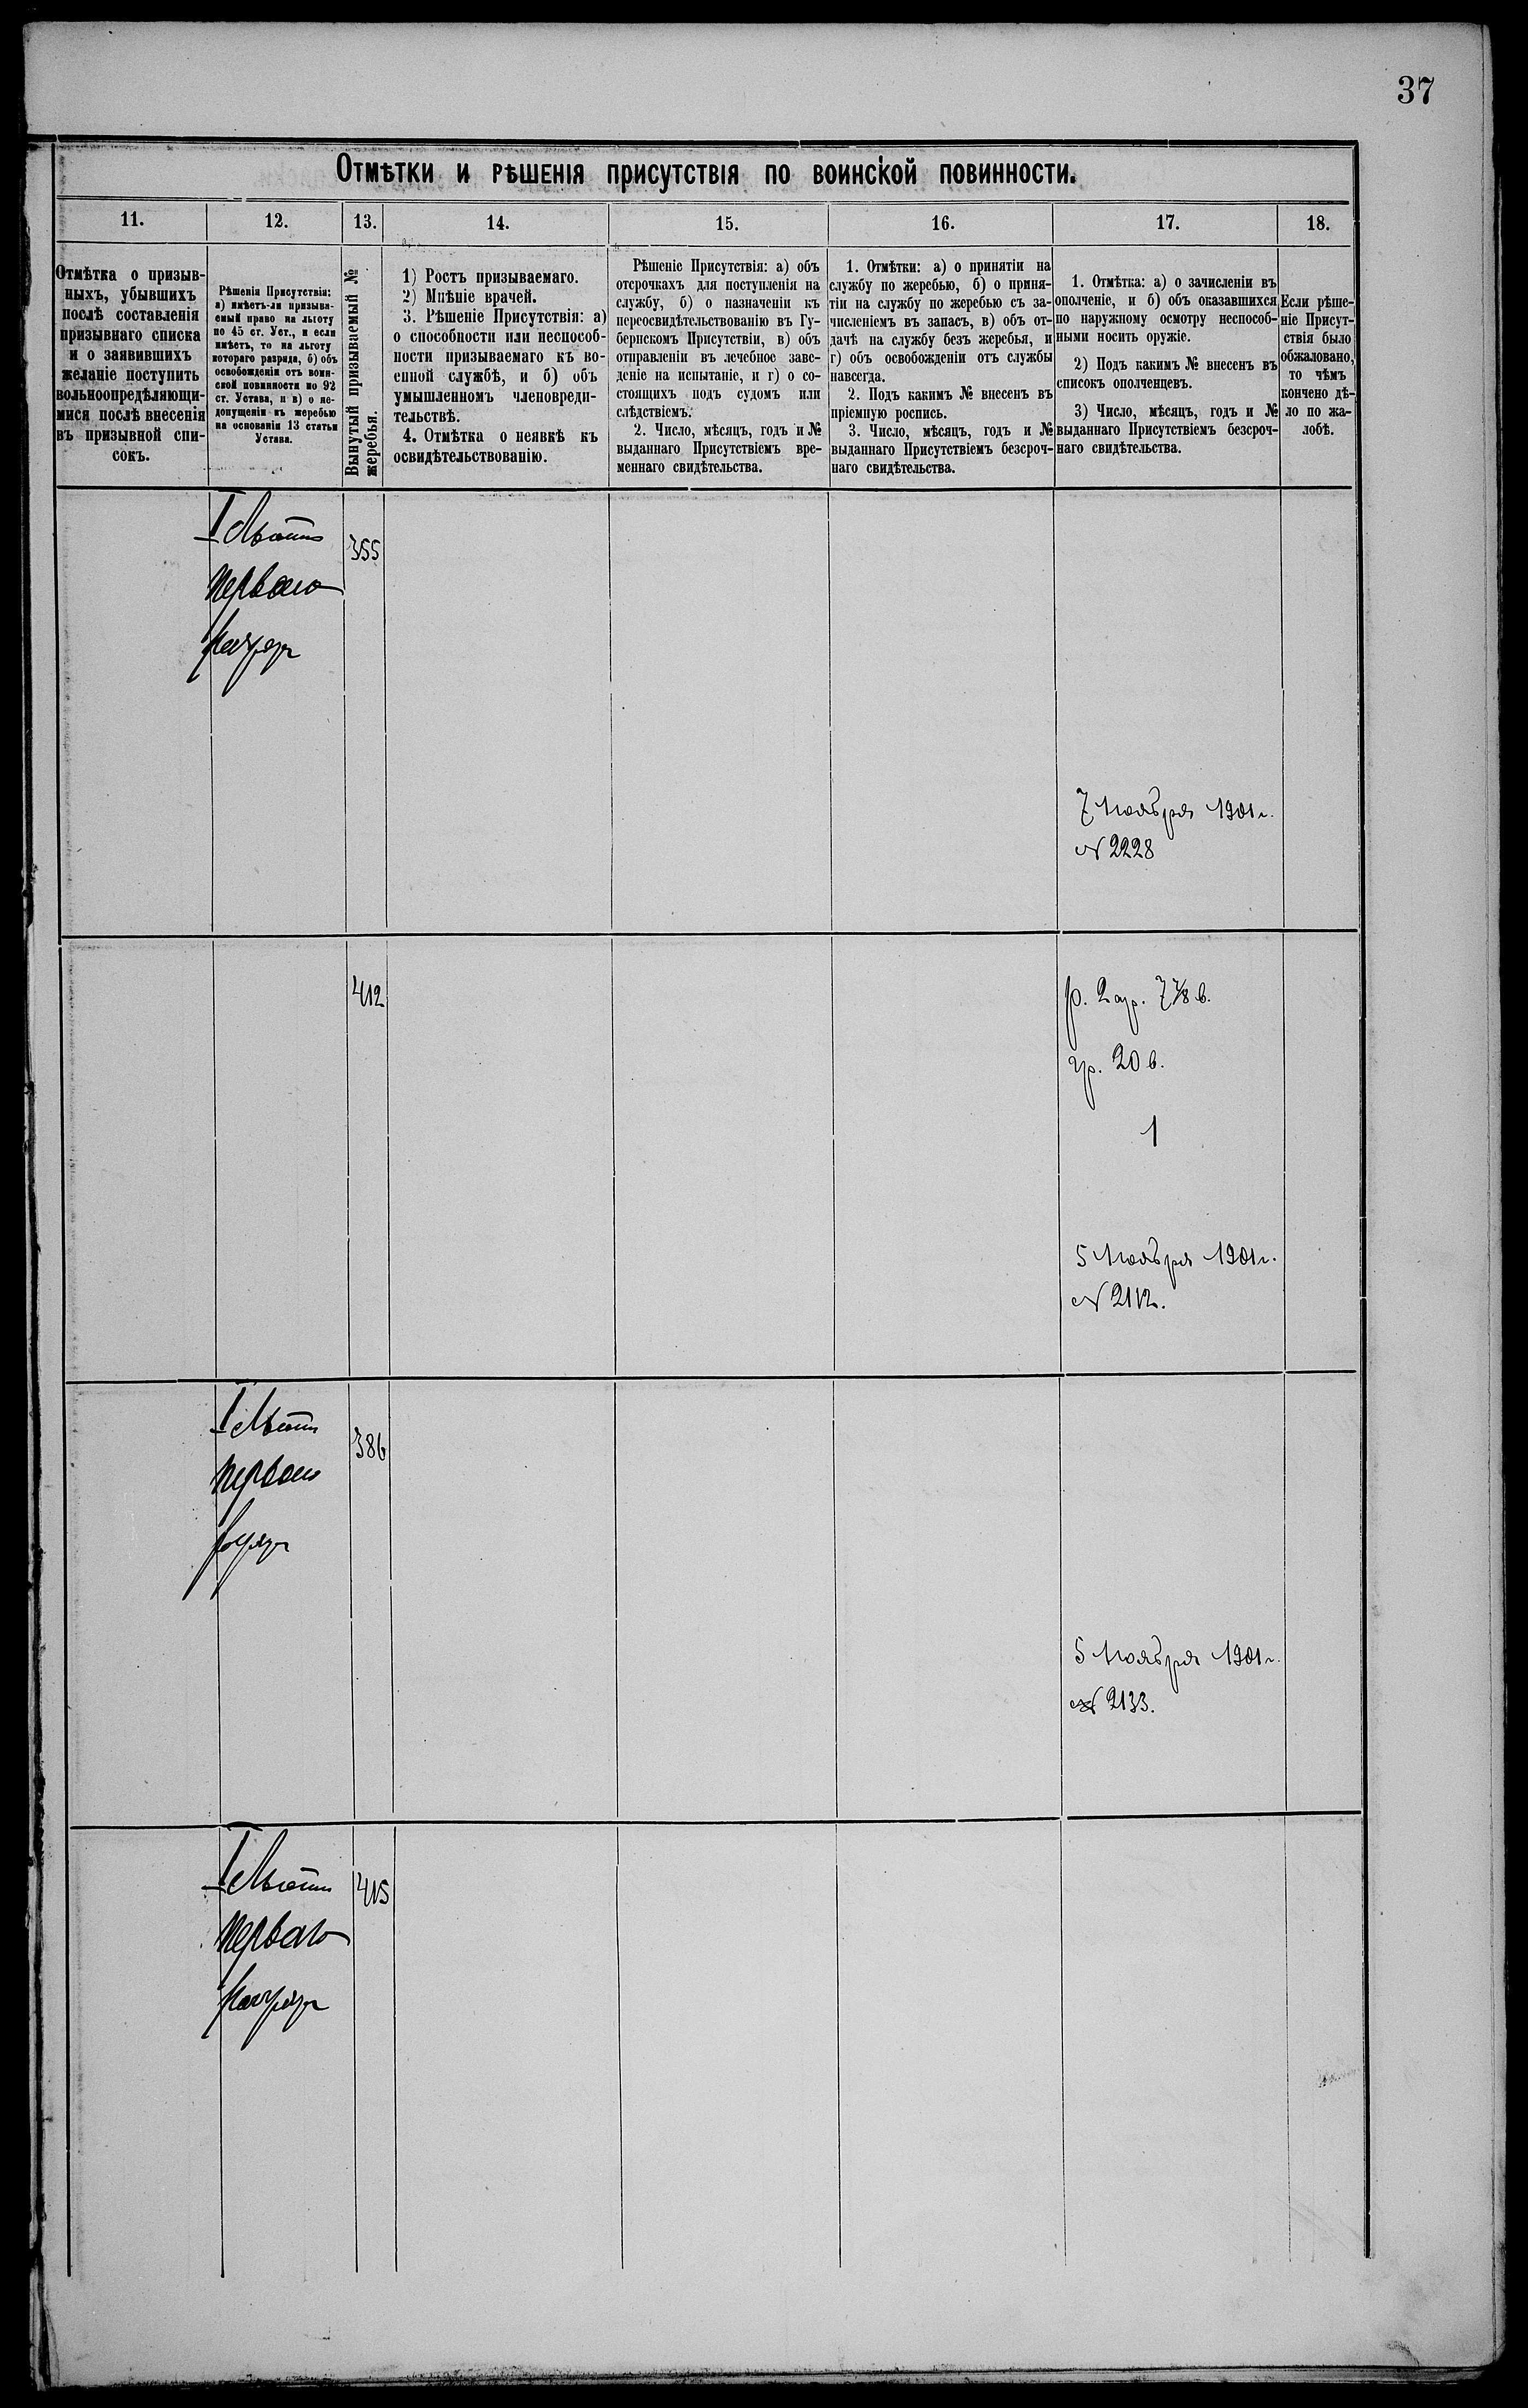 37
Отмѣтки и рѣшенія присутствія по воинской повинности.
11. 12. 13. 14. 15. 16. 17. 18.
Отмѣтка о призыв-
ныхъ, убывшихъ
послѣ составленія
призывнаго списка
и о заявившихъ
желаніе поступить
вольноопредѣляющи-
мися послѣ внесенія
въ призывной спи-
сокъ.
Рѣшенія Присутствія:
а) имѣетъ-ли призыва-
емый право на льготу
по 45 ст. Уст., и если
имѣетъ, то на льготу
котораго разряда, б) объ
освобожденіи отъ воин-
ской повинности по 92
ст. Устава, и в) о не-
допущеніи къ жеребью
на основаніи 13 статьи
Устава.
Вынутый призываемый №
жеребья.
1) Ростъ призываемаго.
2) Мнѣніе врачей.
3. Рѣшеніе Присутствія: а)
о способности или неспособ-
ности призываемаго къ во-
енной службѣ, и б) объ
умышленномъ членовреди-
тельствѣ.
4. Отмѣтка о неявкѣ къ
освидѣтельствованію.
Рѣшеніе Присутствія: а) объ
отсрочкахъ для поступленія на
службу, б) о назначеніи къ
переосвидѣтельствованію въ Гу-
бернскомъ Присутствіи, в) объ
отправленіи въ лечебное заве-
деніе на испытаніе, и г) о со-
стоящихъ подъ судомъ или
слѣдствіемъ.
2. Число, мѣсяцъ, годъ и №
выданнаго Присутствіемъ вре-
меннаго свидѣтельства.
1. Отмѣтки: а) о принятіи на
службу по жеребью, б) о приня-
тіи на службу по жеребью съ за-
численіемъ въ запасъ, в) объ от-
дачѣ на службу безъ жеребья, и
г) объ освобожденіи отъ службы
навсегда.
2. Подъ какимъ № внесенъ въ
пріемную роспись.
3. Число, мѣсяцъ, годъ и №
выданнаго Присутствіемъ безсроч-
наго свидѣтельства.
1. Отмѣтка: а) о зачисленіи въ
ополченіе, и б) объ оказавшихся
по наружному осмотру неспособ-
ными носить оружіе.
2) Подъ какимъ № внесенъ въ
списокъ ополченцевъ.
3) Число, мѣсяцъ, годъ и №
выданнаго Присутствіемъ безсроч-
наго свидѣтельства.
Если рѣше-
ніе Присут-
ствія было
обжаловано,
то чѣмъ
кончено дѣ-
ло по жа-
лобѣ.
I Льготы
перваго
разряда
355
7 Ноября 1901 г.
№ 2228
412
р. 2 ар. 7 7/8 в.
гр. 20 в.
1
5 Ноября 1901 г.
№ 2112.
I Льготы
перваго
разряда
386
5 Ноября 1901 г.
№ 2133.
I Льготы
перваго
разряда
415